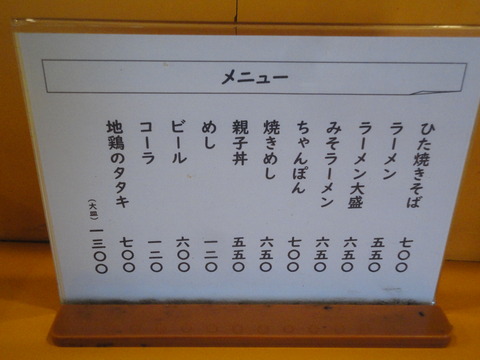 メニュー
ひた焼きそば 七〇〇
ラーメン 五五〇
ラーメン大盛 六五〇
みそラーメン 六五〇
ちゃんぽん 七〇〇
焼きめし 六五〇
親子丼 五五〇
めし 一二〇
ビール 六〇〇
コーラ 一二〇
地鶏のタタキ 七〇〇
(大皿) 一三〇〇